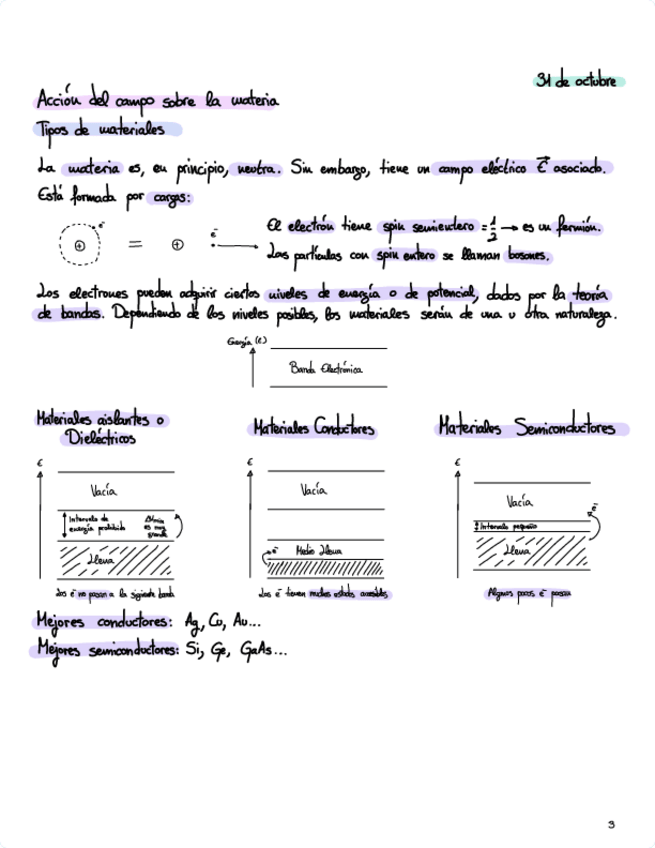 31 de octubre
Acción del campo sobre la materia
Tipos de materiales
La materia es, en principio, neutra. Sin embargo, tiene un campo eléctrico E⃗ asociado.
Está formada por cargas:
e⁻
⊕ = ⊕ e⁻
El electrón tiene spin semientero = 1/2 → es un fermión.
Las partículas con spin entero se llaman bosones.
Los electrones pueden adquirir ciertos niveles de energía o de potencial, dados por la teoría
de bandas. Dependiendo de los niveles posibles, los materiales serán de una u otra naturaleza.
Energía (E)
Banda Electrónica
Materiales aislantes o
Dieléctricos
E
Vacía
Intervalo de
energía prohibido
es muy
grande
Llena
Los e⁻ no pasan a la siguiente banda
Materiales Conductores
E
Vacía
e⁻
Medio llena
Los e⁻ tienen muchos estados accesibles
Materiales Semiconductores
E
Vacía
e⁻
Intervalo pequeño
Llena
Algunos pocos e⁻ pasan
Mejores conductores: Ag, Cu, Au...
Mejores semiconductores: Si, Ge, GaAs...
3